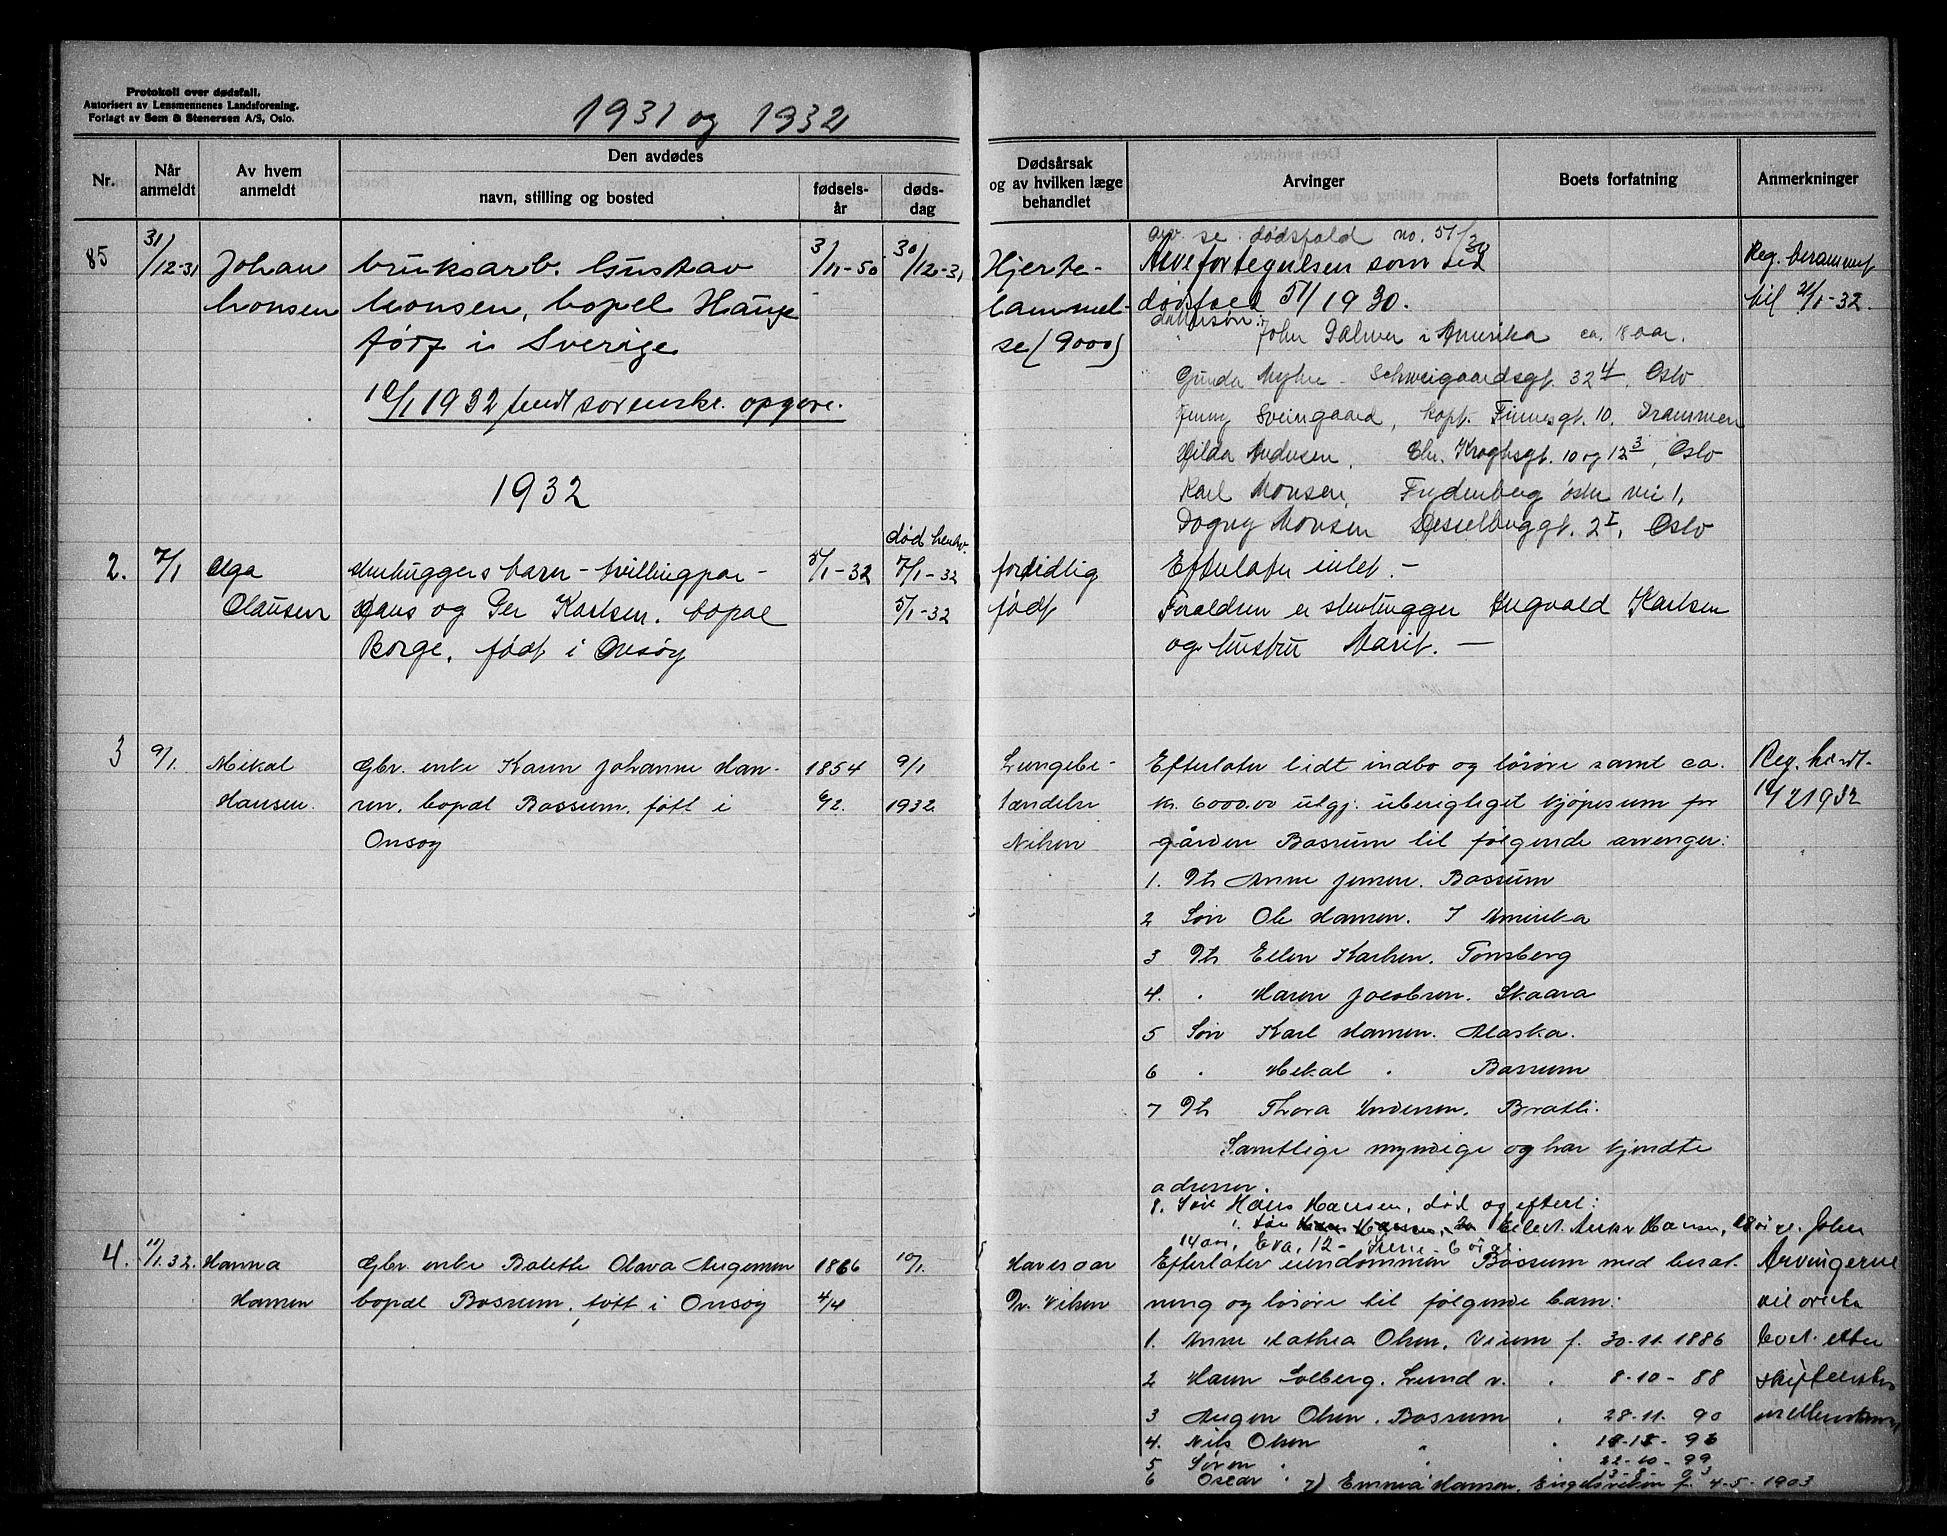 Protokoll over dødsfall.
Autorisert av Lensmennenes Landsforening.
Forlagt av Sem & Stenersen A/S, Oslo.
1931 og 1932
Nr.
Når anmeldt
Av hvem anmeldt
Den avdødes
navn, stilling og bosted
fødsels-år
døds-dag
Dødsårsak og av hvilken læge behandlet
Arvinger
Boets forfatning
Anmerkninger
85
31/12-31
Johan
Monsen
bruksarb. Gustav
Monsen, bopel Hauge
førf i Sverige
10/1 1932 sendt sorenskr. opgave.
3/11-50
30/12-31
Hjerte-
lammel-
se (9000)
arv. se dødsfald no. 51/30
Arvefortegnelsen som ved
dødsfald 51/1930.
dattersøn:
John Palmer i Amerika ca. 18 aar.
Gunda Myhre - Schweigaardsgt. 32 4, Oslo
Jenny Sveingaard, kapt. Finnesgt. 10. Drammen
Hilda Andersen, Chr. Kroghsgt. 10 og 12 3, Oslo
Karl Monsen, Frydenberg østre vei 1,
Dagny Monsen Hesselbergsgt. 2 I, Oslo
Reg. berammet
til 21/1-32.
1932
2.
7/1
Olga
Clausen
stenhuggers barn - tvillingpar -
Hans og Per Karlsen, bopæl
Borge, født i Onsøy
5/1-32
død henhv.
7/1-32
5/1-32
fortidlig
født
Efterlater intet. -
Foreldren er stenhugger Ingvald Karlsen
og hustru Marit. -
3
9/1.
Mikal
Hansen.
Gbr. enke Karen Johanne Han-
sen, bopæl Bossum, født i
Onsøy
1854
6/2.
9/1
1932.
Lungebe-
tændelse
Nilsen
Efterlater lidt indbo og løsøre samt ca.
kr. 6000.00 utgj. uberigtiget kjøpesum for
gården Bossum til følgende arvinger:
1. Dtr Anne Jensen. Bossum
2 Søn Ole Hansen. I Amerika
3 Dtr Ellen Karlsen. Tønsberg
4. " Karen Jacobsen. Skaara
5 Søn Karl Hansen. Alaska.
6 " Mekal " Bossum
7 Dtr Thora Andersen. Bratli.
Samtlige myndige og har kjendte
adresser.
8. Søn Hans Hansen, død og efterl:
Hansen, 18 år. John
14 aar, Eva, 12 - Irene 6 år.
Reg. holdt
10/2 1932
4.
11/1.32.
Hanna
Hansen
Gbr. enke Bolette Olava Augensen
bopæl Bossum, født i Onsøy
1866
4/4
10/1.
Dr. Nilsen
Efterlater eiendommen Bossum med besæt-
ning og løsøre til følgende barn:
1. Anne Mathea Olsen, Vium f. 30-11-1886
2 Karen Solberg. Lund v. " 8-10-88
3 Augen Olsen. Bossum " 28-11-90
4. Nils Olsen " "
5 Søren " " 22-10-99
6 Oscar "
7) Emma Hansen, Engelsviken f. 4-5-1903
Arvingerne
vil ordne
boet etter